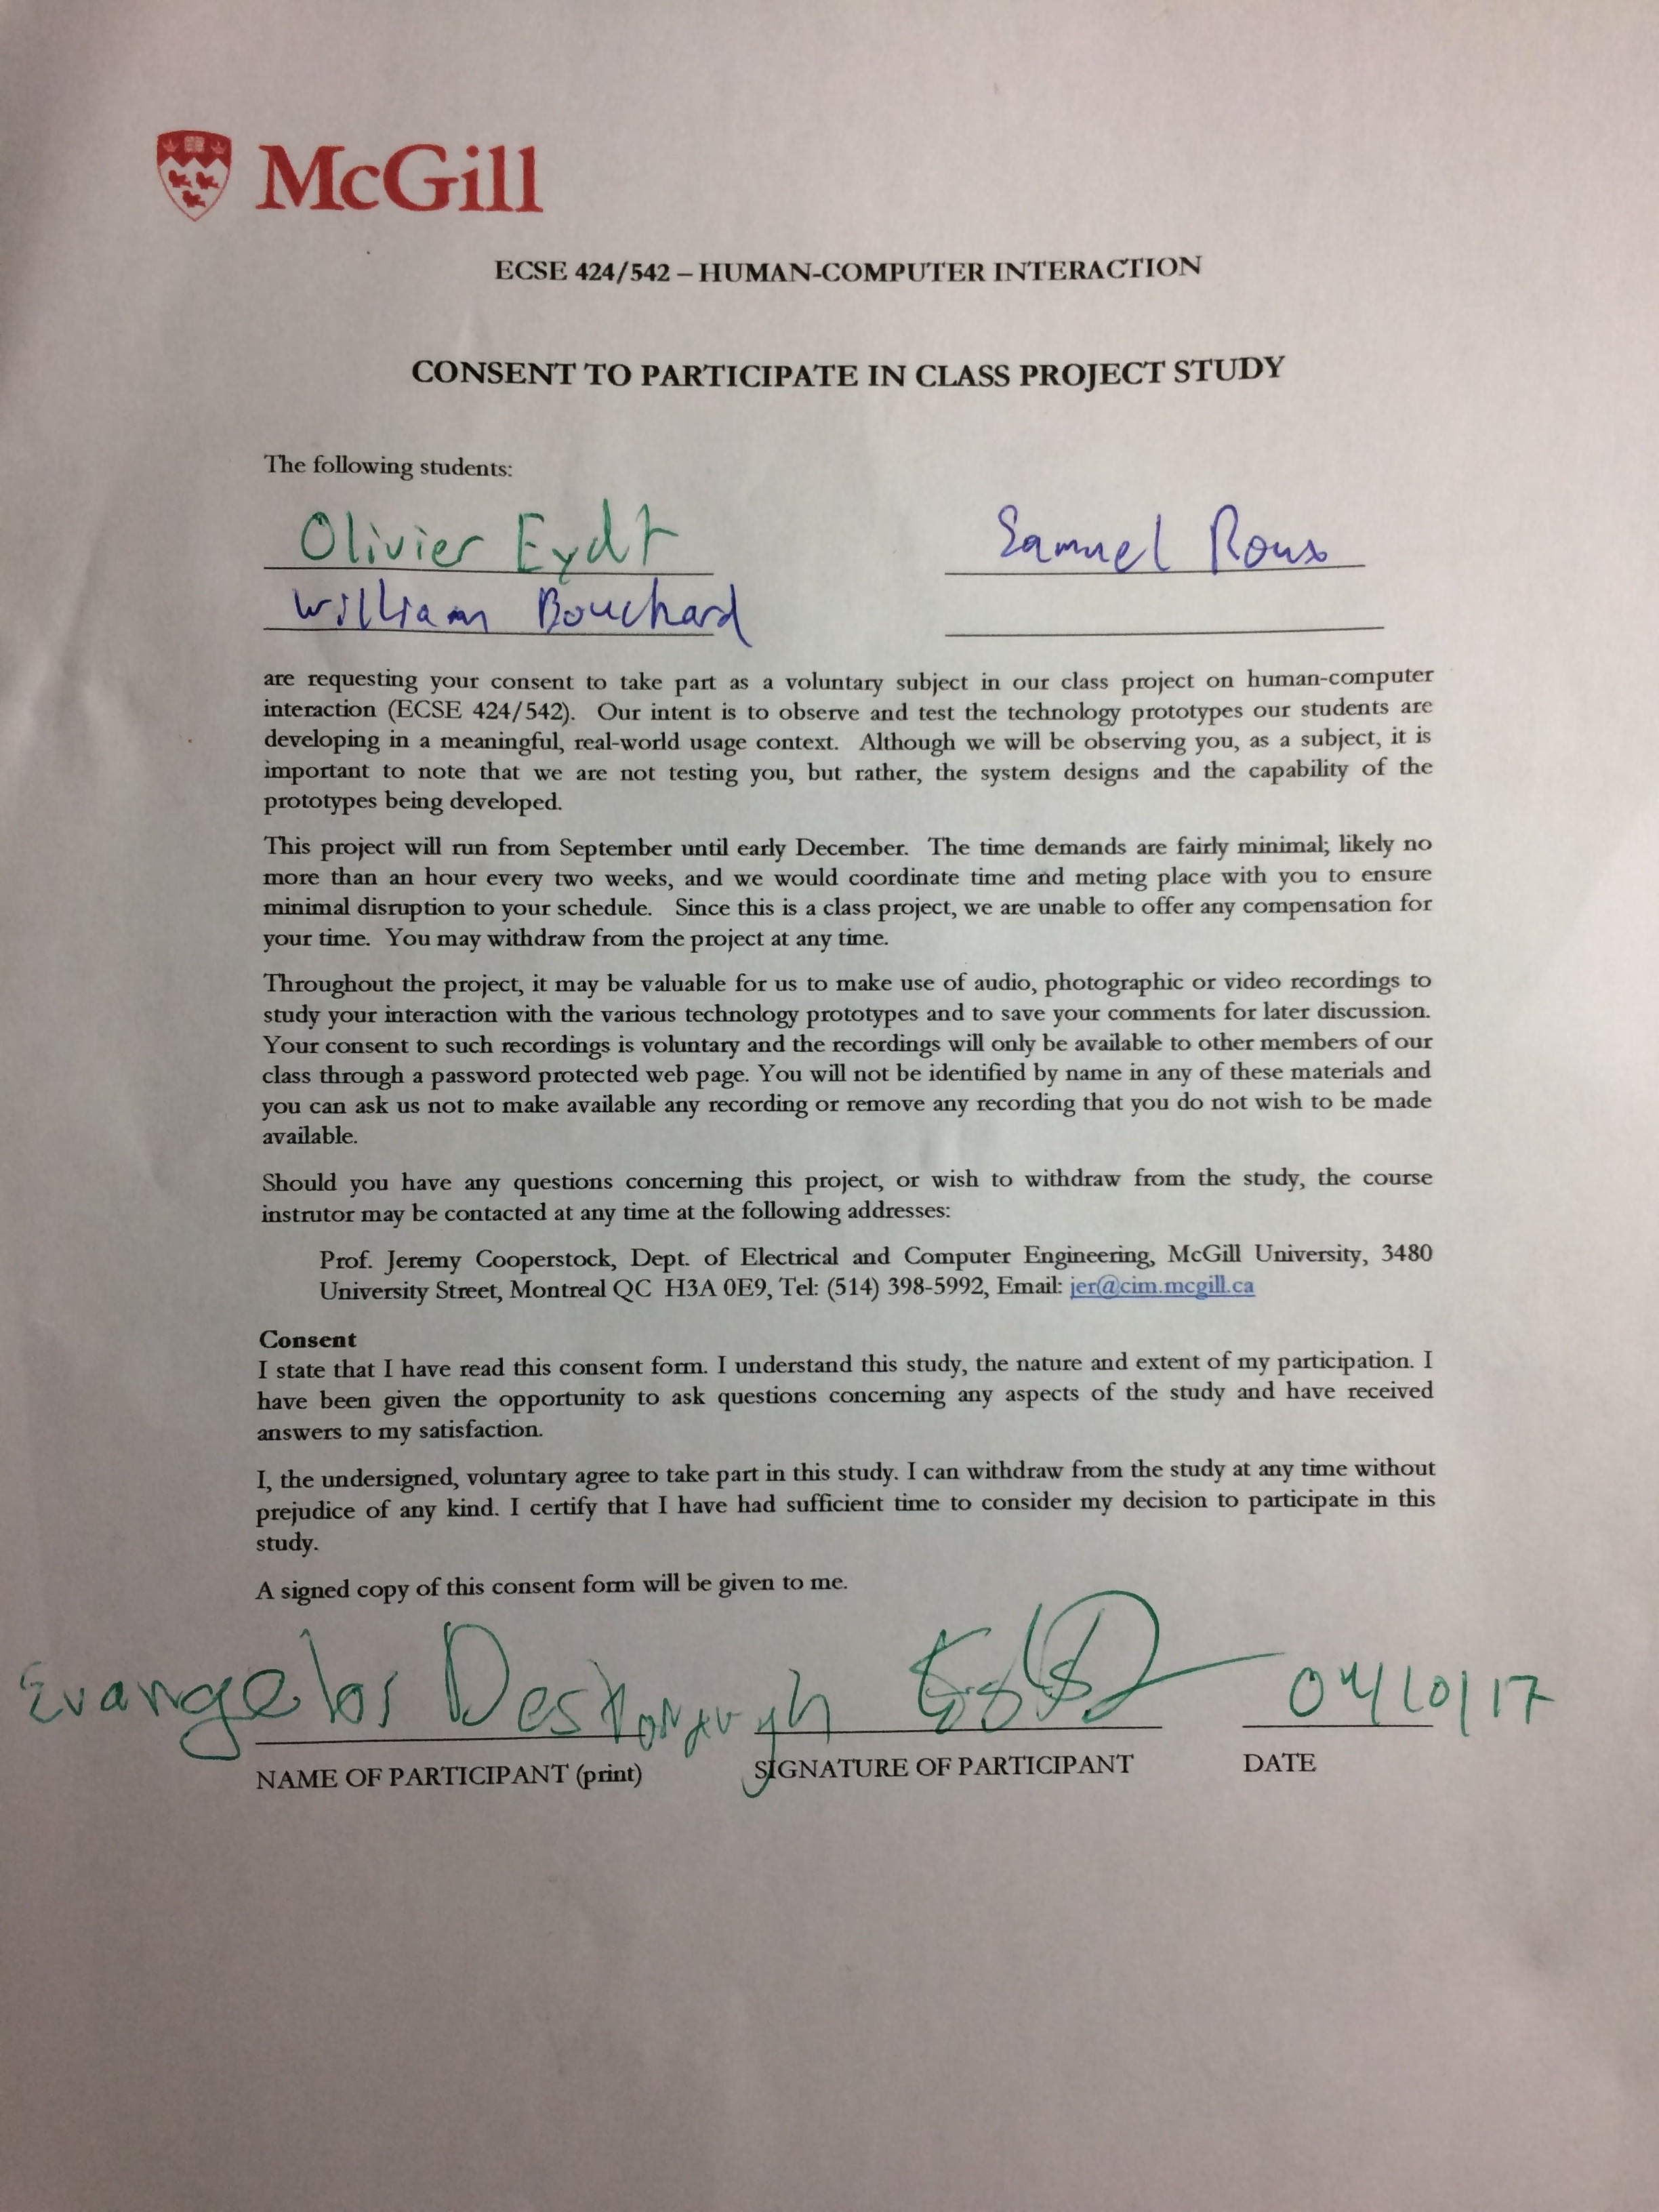 McGill
ECSE 424/542 – HUMAN-COMPUTER INTERACTION
CONSENT TO PARTICIPATE IN CLASS PROJECT STUDY
The following students:
Olivier Eydt Samuel Roux
William Bouchard
are requesting your consent to take part as a voluntary subject in our class project on human-computer
interaction (ECSE 424/542). Our intent is to observe and test the technology prototypes our students are
developing in a meaningful, real-world usage context. Although we will be observing you, as a subject, it is
important to note that we are not testing you, but rather, the system designs and the capability of the
prototypes being developed.
This project will run from September until early December. The time demands are fairly minimal; likely no
more than an hour every two weeks, and we would coordinate time and meting place with you to ensure
minimal disruption to your schedule. Since this is a class project, we are unable to offer any compensation for
your time. You may withdraw from the project at any time.
Throughout the project, it may be valuable for us to make use of audio, photographic or video recordings to
study your interaction with the various technology prototypes and to save your comments for later discussion.
Your consent to such recordings is voluntary and the recordings will only be available to other members of our
class through a password protected web page. You will not be identified by name in any of these materials and
you can ask us not to make available any recording or remove any recording that you do not wish to be made
available.
Should you have any questions concerning this project, or wish to withdraw from the study, the course
instrutor may be contacted at any time at the following addresses:
Prof. Jeremy Cooperstock, Dept. of Electrical and Computer Engineering, McGill University, 3480
University Street, Montreal QC H3A 0E9, Tel: (514) 398-5992, Email: jer@cim.mcgill.ca
Consent
I state that I have read this consent form. I understand this study, the nature and extent of my participation. I
have been given the opportunity to ask questions concerning any aspects of the study and have received
answers to my satisfaction.
I, the undersigned, voluntary agree to take part in this study. I can withdraw from the study at any time without
prejudice of any kind. I certify that I have had sufficient time to consider my decision to participate in this
study.
A signed copy of this consent form will be given to me.
Evangelos 04/10/17
NAME OF PARTICIPANT (print) SIGNATURE OF PARTICIPANT DATE